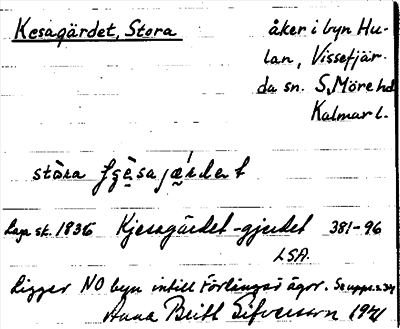 Kesagärdet, Stora
åker i byn Hu-
lan, Vissefjär-
da sn. S. Möre hd
Kalmar l.
stòra
Laga sk. 1836 Kjesagärdet -gjerdet 381-96
LSA.
Ligger NO byn intill Förlängas ägor. Se uppt. s. 34
Anna Britt Sifversson 1941